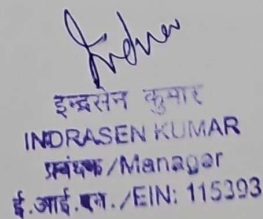 इन्द्रसेन कुमार
INDRASEN KUMAR
प्रबंधक/Manager
ई.आई.एन./EIN: 115393